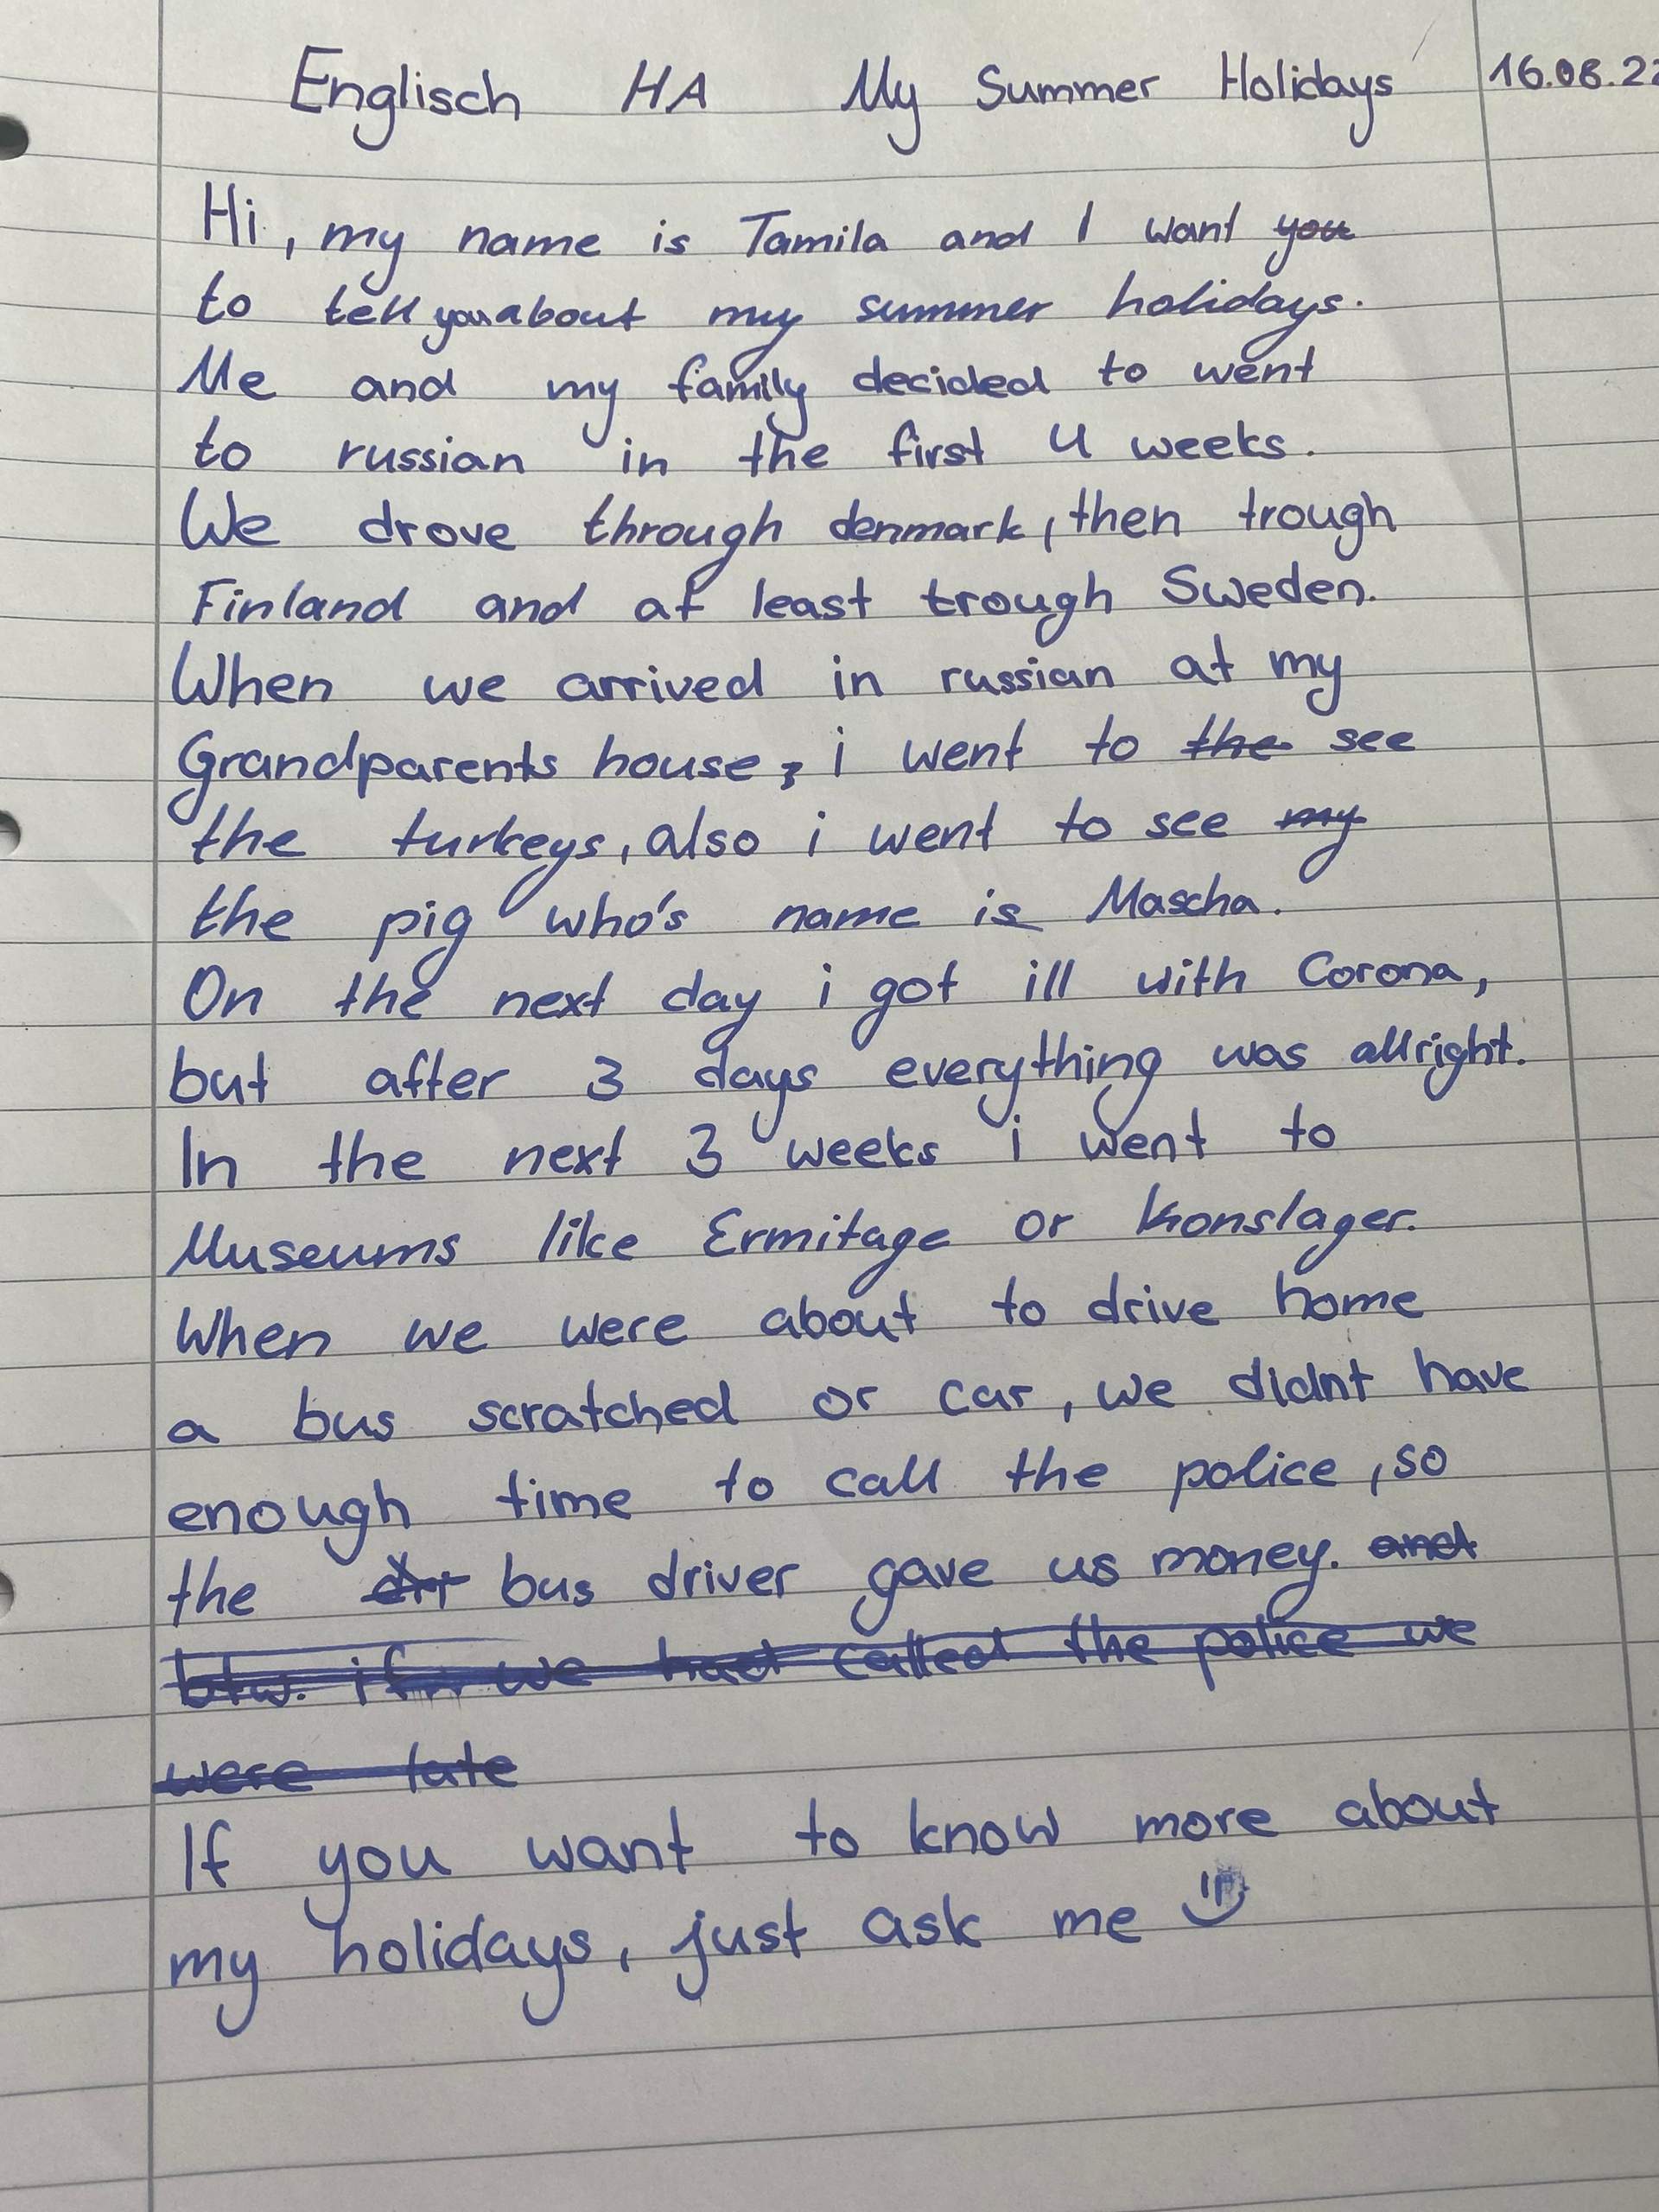 Englisch HA My Summer Holidays 16.08.22
Hi, my name is Tamila and I want you
to tell you about my summer holidays.
Me and my family decided to went
to russian in the first 4 weeks.
We drove through denmark, then trough
Finland and at least trough Sweden.
When we arrived in russian at my
Grandparents house, i went to the see
the turkeys, also i went to see my
the pig who's name is Mascha.
On the next day i got ill with Corona,
but after 3 days everything was allright.
In the next 3 weeks i went to
Museums like Ermitage or Konslager.
When we were about to drive home
a bus scratched or car, we didnt have
enough time to call the police, so
the bus driver gave us money. and
btw. if we had called the police we
were late
If you want to know more about
my holidays, just ask me